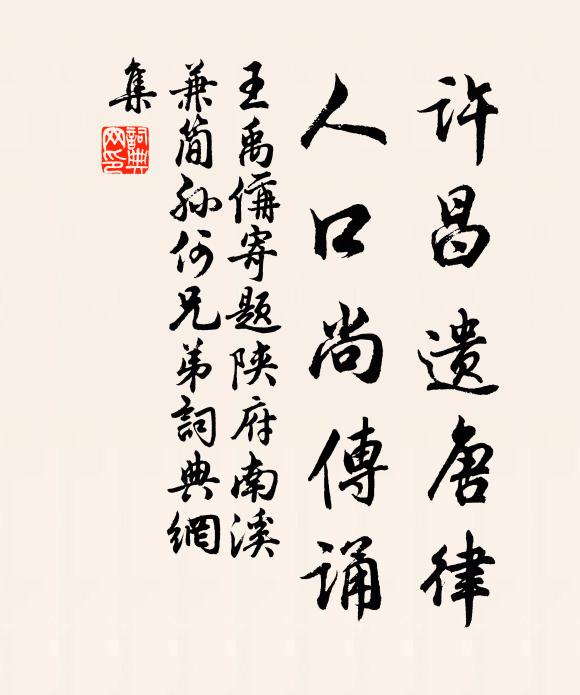 许昌遗唐律
人口尚傳诵
王禹偁寄题陕府南溪
兼简孙何兄弟詞典網
集
詞典网印